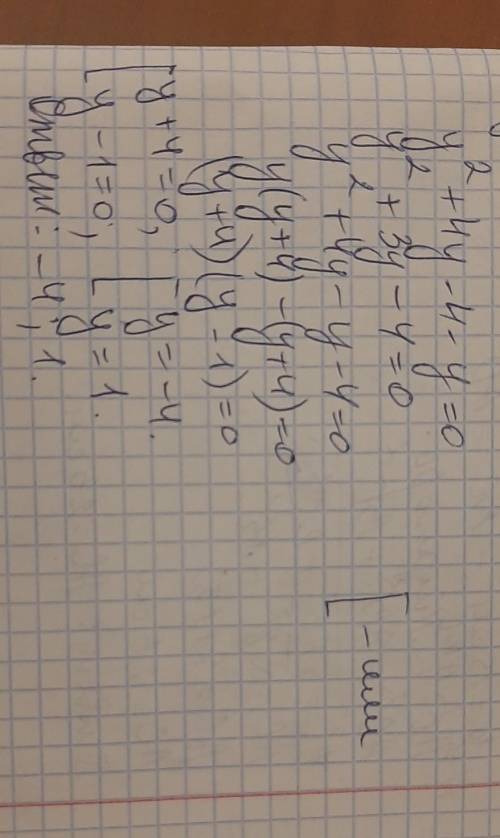 y² + 4y - 4 - y = 0
y² + 3y - 4 = 0
y² + 4y - y - 4 = 0
y(y + 4) - (y + 4) = 0
(y + 4)(y - 1) = 0
[ y + 4 = 0, [ y = -4.
[ y - 1 = 0; [ y = 1.
Ответ: -4; 1.
[ - или